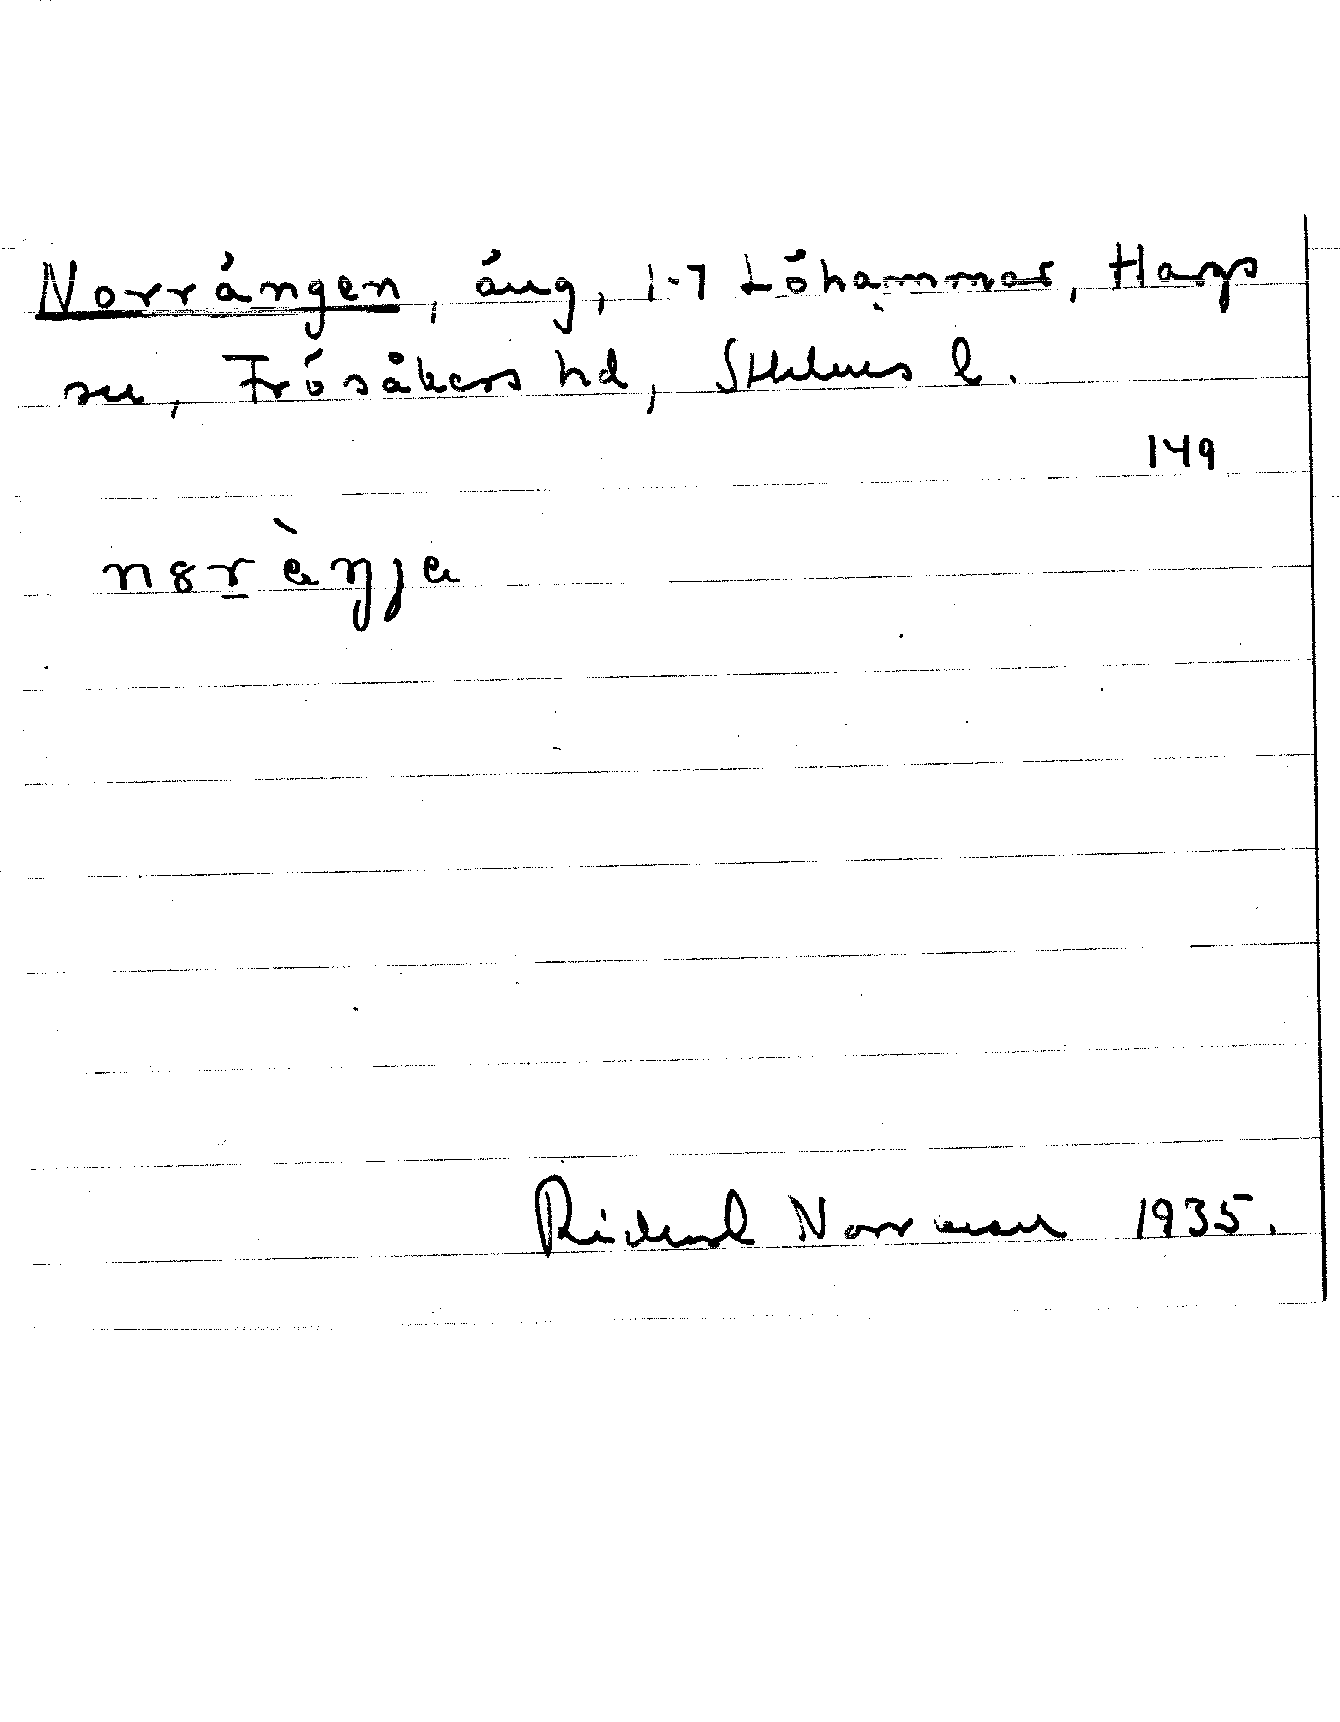 Norrängen, äng, 1-7 Löhammar, Hargs
sn, Frösåkers hd, Sthlms l.
149
n8r̲àŋja
Rickard Norrman 1935.